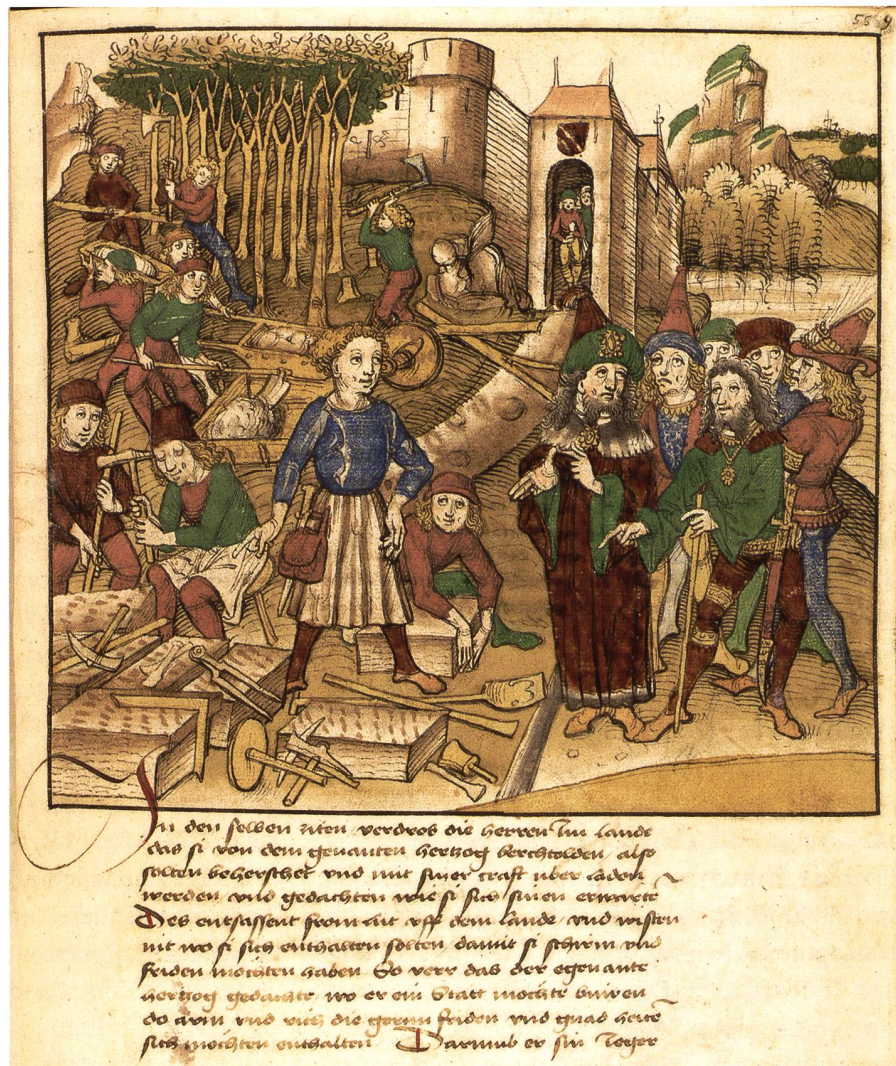 55
In den selben ziten verdros die herren im lande
das si von dem genanten hertzog berchtolden also
solten beherschet vnd mit siner craft uber laden
werden vnd gedachten wie si sich sinen erwerte
Des entsassent from lut vff dem lande vnd wisten
nit wo si sich enthalten solten damit si schirm vnd
friden mochten haben So verr das der egenante
hertzog gedachte wo er ein Statt mochte buwen
do arm vnd rich die gernn friden vnd gnad hette
sich mochten enthalten Darumb er sin leger